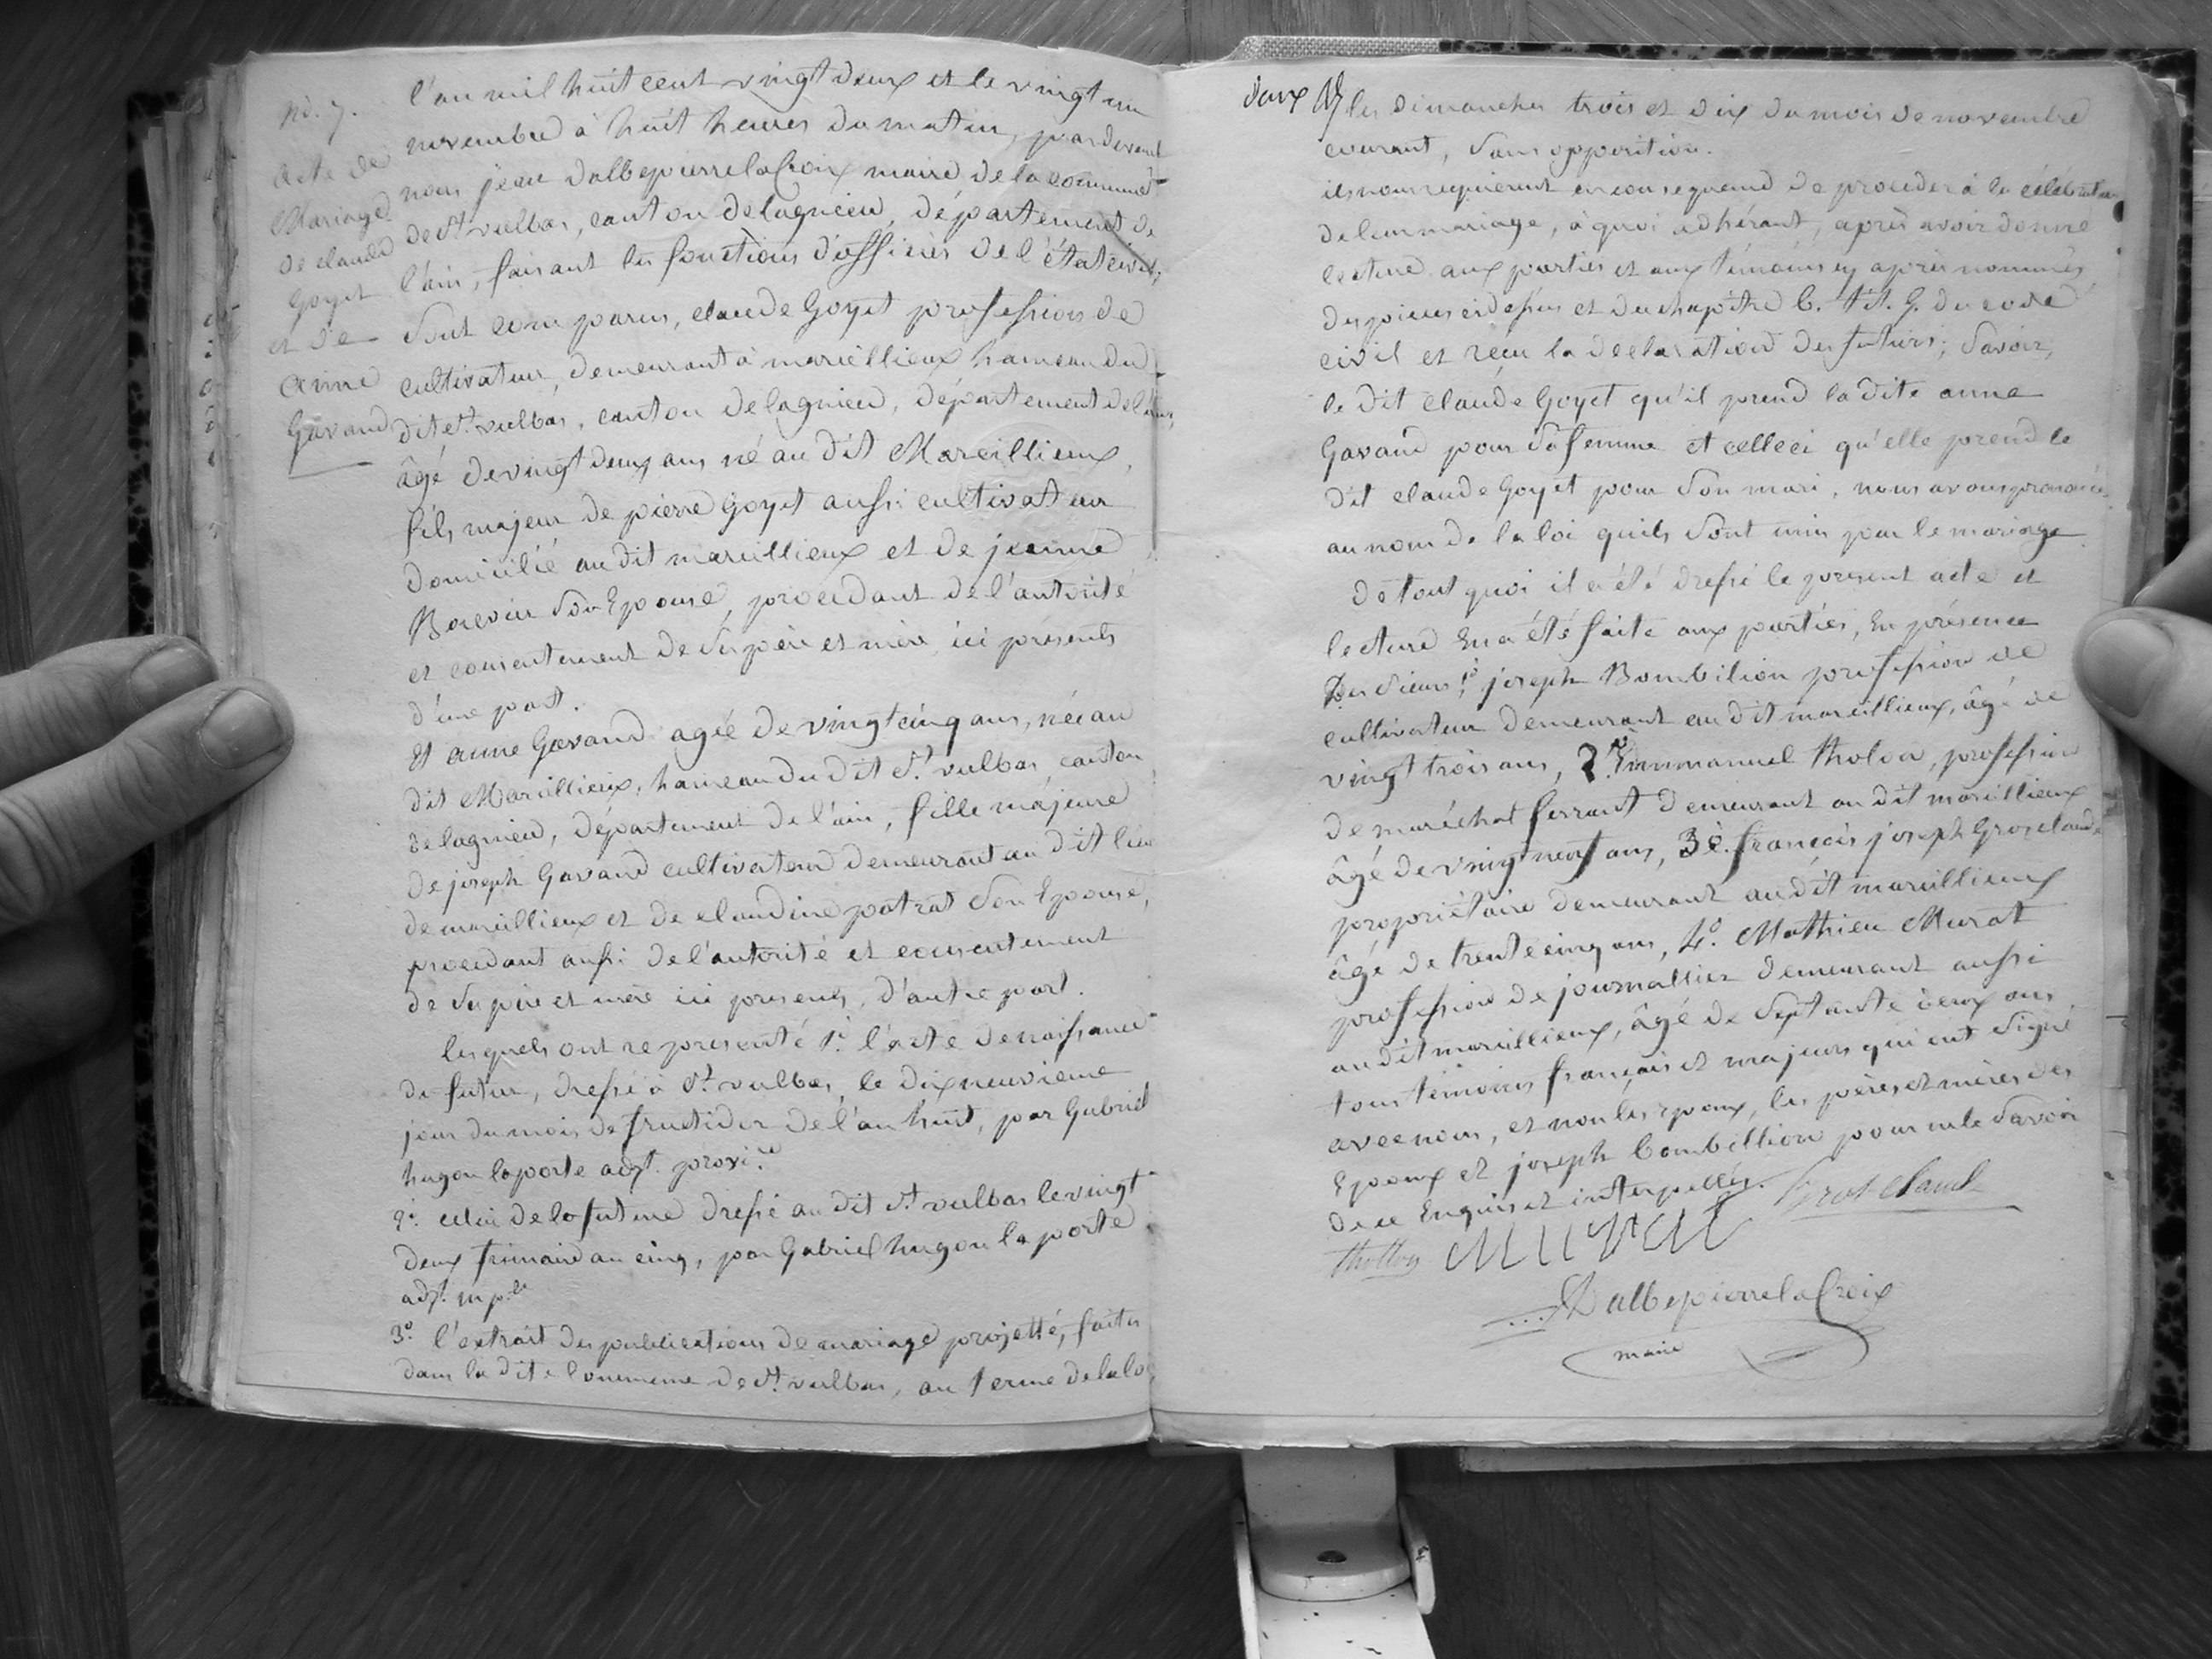 no. 7.
acte de
Mariage
de claude
Goyet
et de
anne
Gavand
l'an mil huit cent vingt deux et le vingt un
novembre à huit heures du matin, pardevant
nous jean dalbepierrelaCroix maire de la commune
de st. vulbas, canton de lagnieu, département de
l'ain, faisant les fonctions d'officier de l'état civil,
sont comparus, claude Goyet profession de
cultivateur, demeurant à marcillieux hameau du
dit st. vulbas, canton de lagnieu, département de l'ain,
âgé de vingt deux ans né au dit Marcillieux,
fils majeur de pierre Goyet aussi cultivateur
domicilié au dit marcillieux et de jeanne
son Epouse, procedant de l'autorité
et consentement de ses père et mère ici présents
d'une part.
Et anne Gavand agée de vingt cinq ans, née au
dit Marcillieux, hameau du dit st. vulbas, canton
de lagnieu, département de l'ain, fille majeure
de joseph Gavand cultivateur demeurant au dit lieu
de marcillieux et de claudine patrat son Epouse,
procedant aussi de l'autorité et consentement
de ses père et mère ici presents, d'autre part.
lesquels ont representé 1°. l'acte de naissance
du futur, dressé à st. vulbas, le dix neuvieme
jour du mois de fructidor de l'an huit, par Gabriel
hugon laporte adjt. provi.re
2°. celui de la future dressé au dit st. vulbas le vingt
deux frimaire an cinq, par Gabriel hugon la porte
adjt. mp.al
3°. l'extrait des publications de mariage projetté, faites
dans la dite Commune de st. vulbas, au terme de la loi
deux les dimanches trois et dix du mois de novembre
courant, sans opposition.
ils nous requierent en consequence de proceder à la célébration
de leur mariage, à quoi adhérant, après avoir donné
lecture aux parties et aux témoins cy après nommés
des pieces cidessus et du chapitre 6. tit. 5. du code
civil et reçu la declaration des futurs; savoir,
le dit claude Goyet qu'il prend la dite anne
Gavand pour sa femme et celleci qu'elle prend le
dit claude Goyet pour son mari, nous avons prononcé
au nom de la loi quils sont unis par le mariage
de tout quoi il a été dressé le present acte et
lecture En a été faite aux parties, En présence
Des sieurs 1° joseph Bombilion profession de
cultivateur demeurant au dit marcillieux, âgé de
vingt trois ans, 2°. Emmanuel tholon, profession
de maréchal ferrant demeurant au dit marcillieux
âgé de vingt neuf ans, 3e. françois joseph Grosclaude
propriétaire demeurant au dit marcillieux
âgé de trente cinq ans, 4°. Mathieu Murat
profession de journallier demeurant aussi
au dit marcillieux, âgé de septante deux ans
tous témoins français et majeurs qui ont signé
avec nous, et non les epoux, les pères et mères des
Epoux et joseph bombillion pour ne le savoir
de ce Enquis et interpellés. Grosclaud
thollon Murat
DalbepierrelaCroix
maire